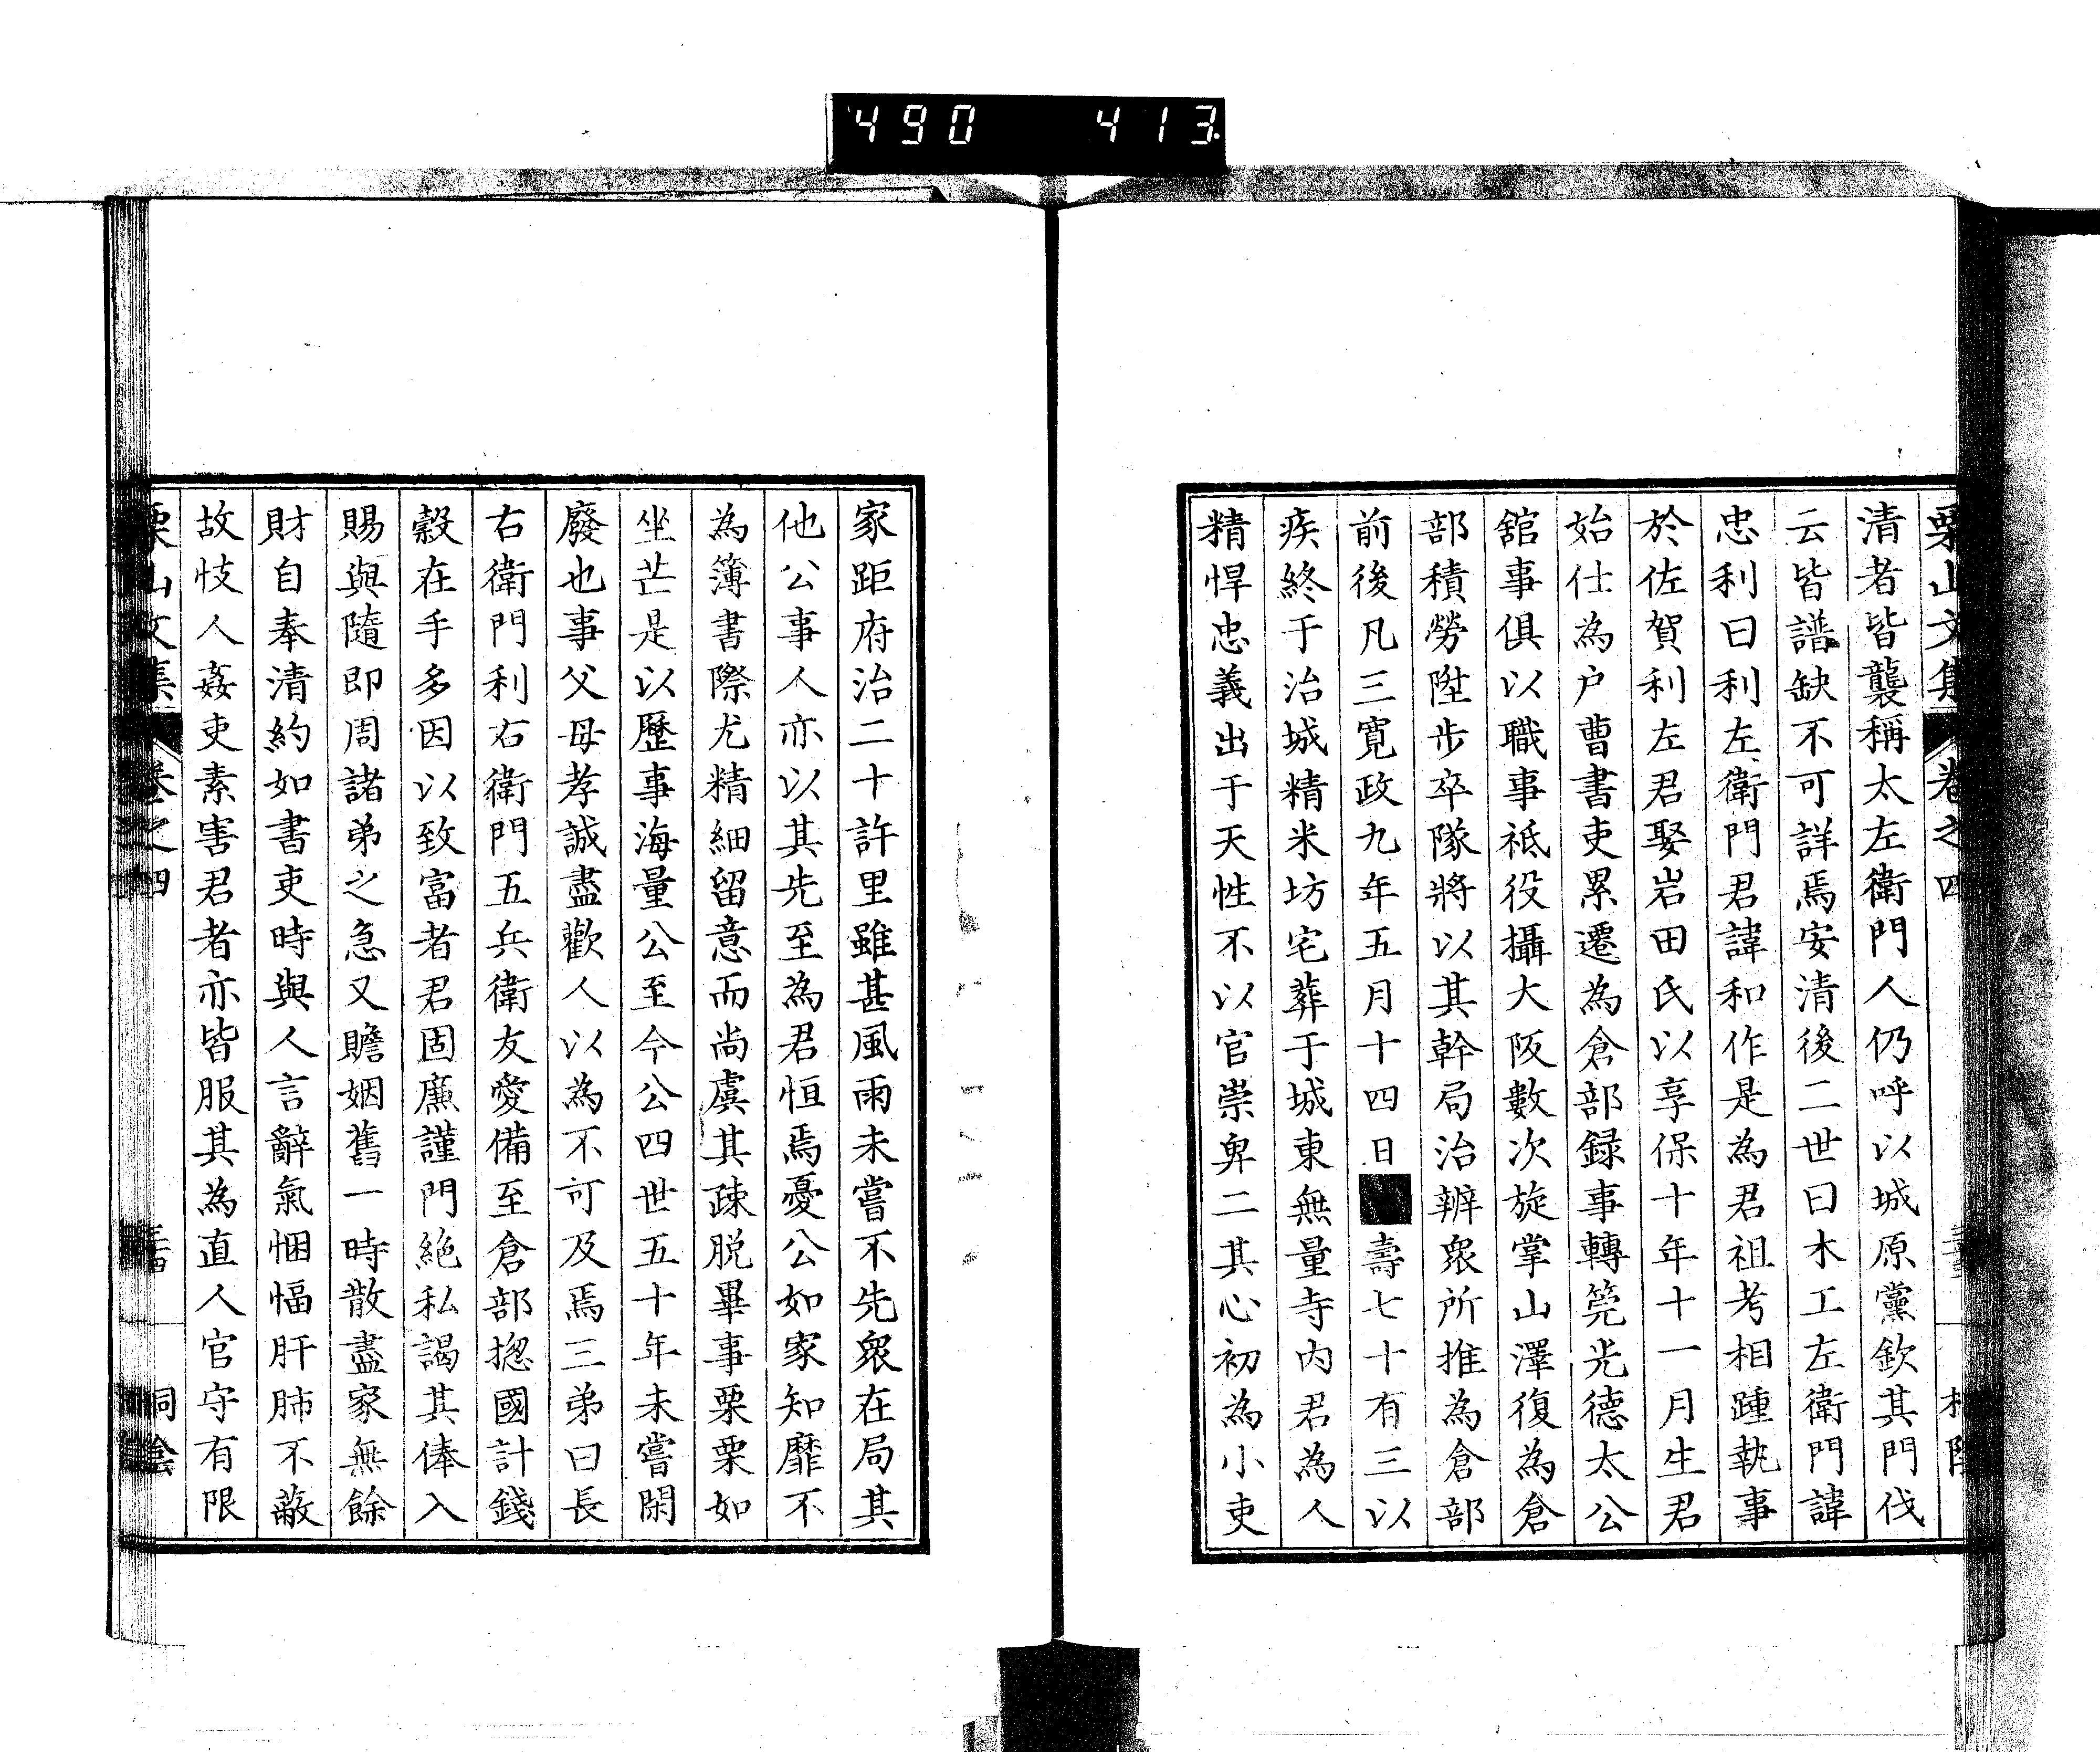 490 413
栗山文集 卷之四
清者皆襲稱太左衛門人仍呼以城原黨欽其門伐
云皆譜缺不可詳焉安清後二世曰木工左衛門諱
忠利曰利左衛門君諱和作是為君祖考相踵執事
於佐賀利左君娶岩田氏以享保十年十一月生君
始仕為户曹書吏累遷為倉部録事轉筦光德太公
舘事俱以職事祗役攝大阪數次旋掌山澤復為倉
部積勞陞步卒隊將以其幹局治辨衆所推為倉部
前後凡三寬政九年五月十四日■壽七十有三以
疾終于治城精米坊宅葬于城東無量寺内君為人
精悍忠義出于天性不以官崇卑二其心初為小吏
家距府治二十許里雖甚風雨未嘗不先衆在局其
他公事人亦以其先至為君恒焉憂公如家知靡不
為簿書際尤精細留意而尚虞其疎脱畢事栗栗如
坐芒是以歷事海量公至今公四世五十年未嘗閑
廢也事父母孝誠盡歡人以為不可及焉三弟曰長
右衛門利右衛門五兵衛友愛備至倉部揔國計錢
穀在手多因以致富者君固廉謹門絶私謁其俸入
賜與隨即周諸弟之急又贍姻舊一時散盡家無餘
財自奉清約如書吏時與人言辭氣悃愊肝肺不蔽
故忮人姦吏素害君者亦皆服其為直人官守有限
栗山文集 卷之四